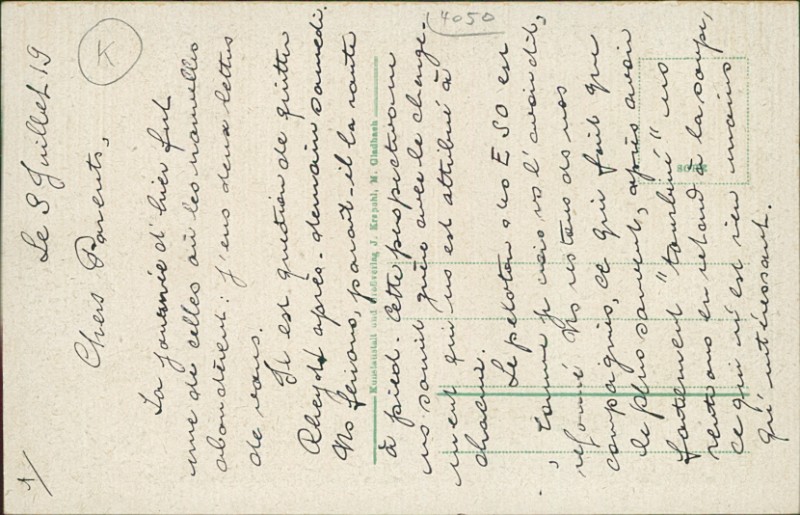 1/
Le 3 Juillet 19
Chers Parents,
La journée d'hier fut
une de celles où les nouvelles
abondèrent : J'eus deux lettres
de vous.
Il est question de quitter
Rheydt après-demain samedi.
Ns ferions, paraît-il la route
à pied. Cette perspective
ns sourit guère avec le change-
ment qui ns est attribué à
chacun.
Le peloton des ESO est
, comme je vais vs l'avais dit,
reformé. Ns restons ds nos
compagnies, ce qui fait que
le plus souvent, après avoir
fortement "tourbiné" ns
rentrons en retard à la soupe,
ce qui n'est rien moins
qu'intéressant.
4050
K
Kunstanstalt und Großverlag J. Krapohl, M. Gladbach